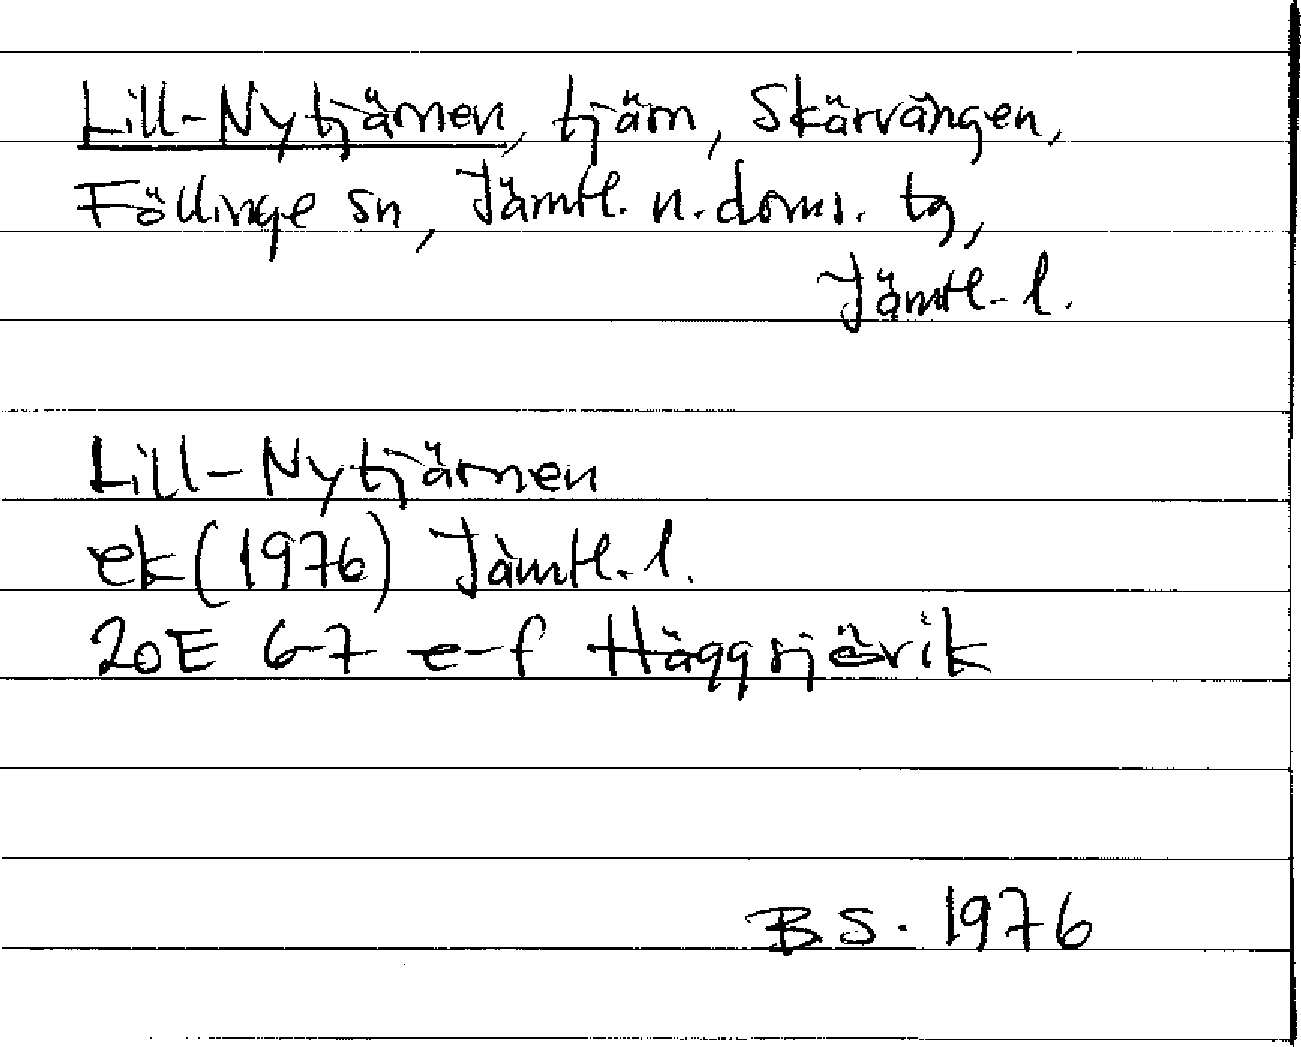 Lill-Nytjärnen, tjärn, Skärvången,
Föllinge sn, Jämtl. n. doms. tg,
Jämtl. l.
Lill-Nytjärnen
ek (1976) Jämtl. l.
20E 6-7 e-f Häggsjövik
B.S. 1976